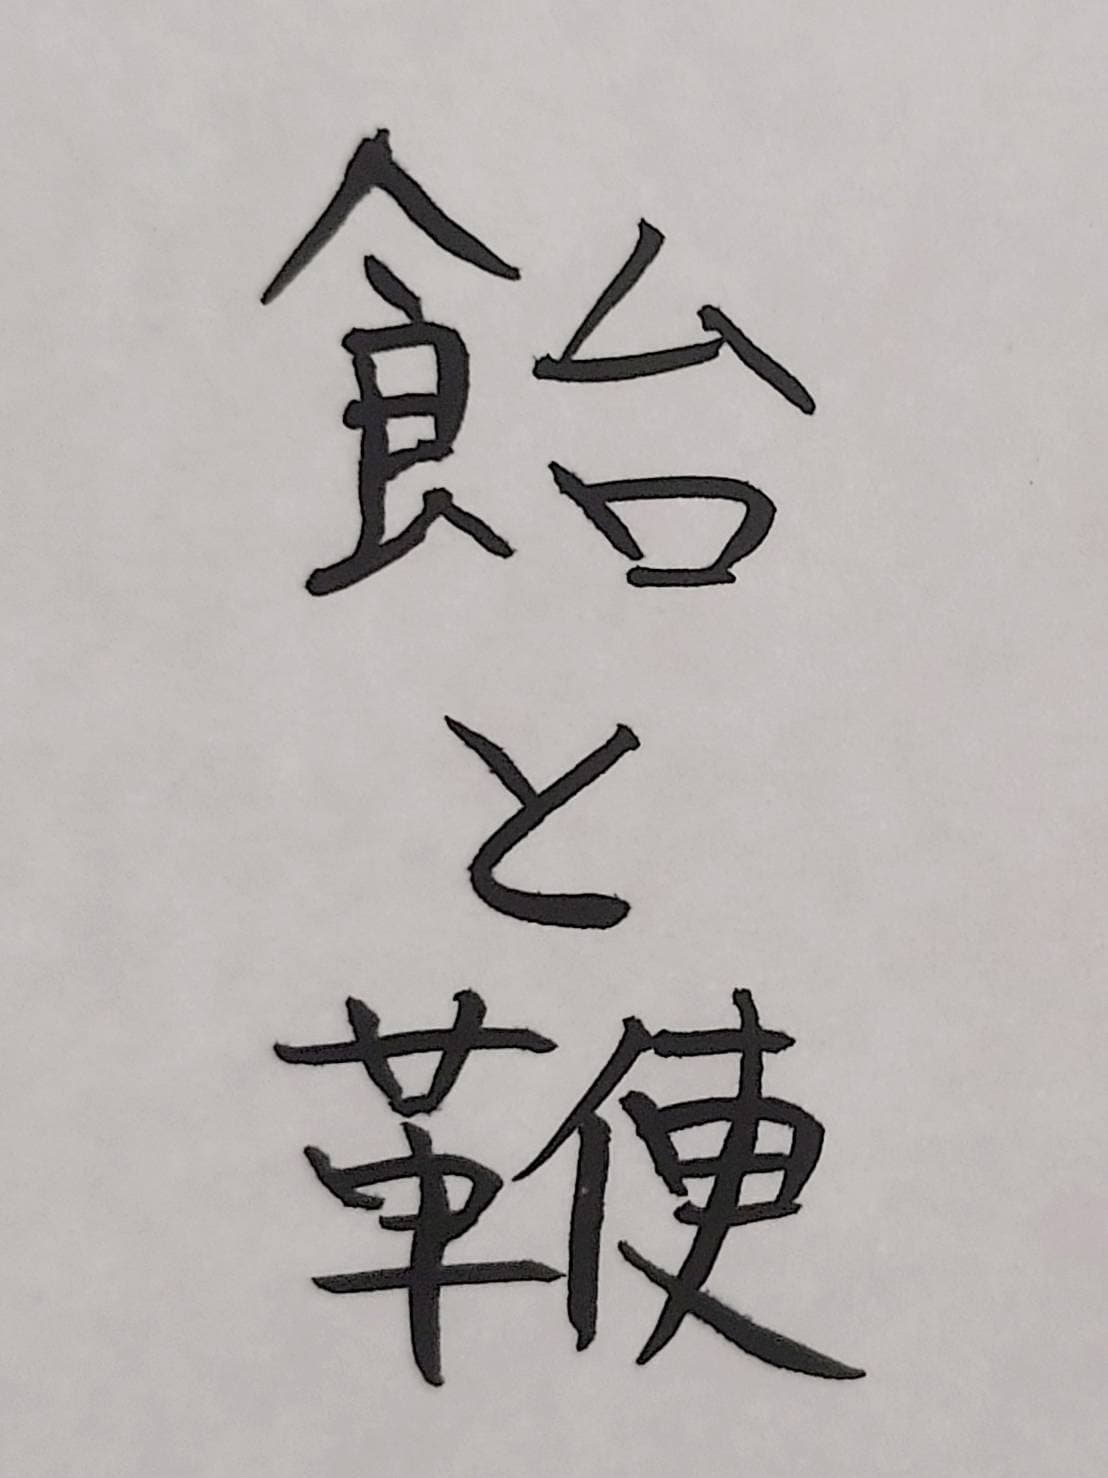 飴と鞭